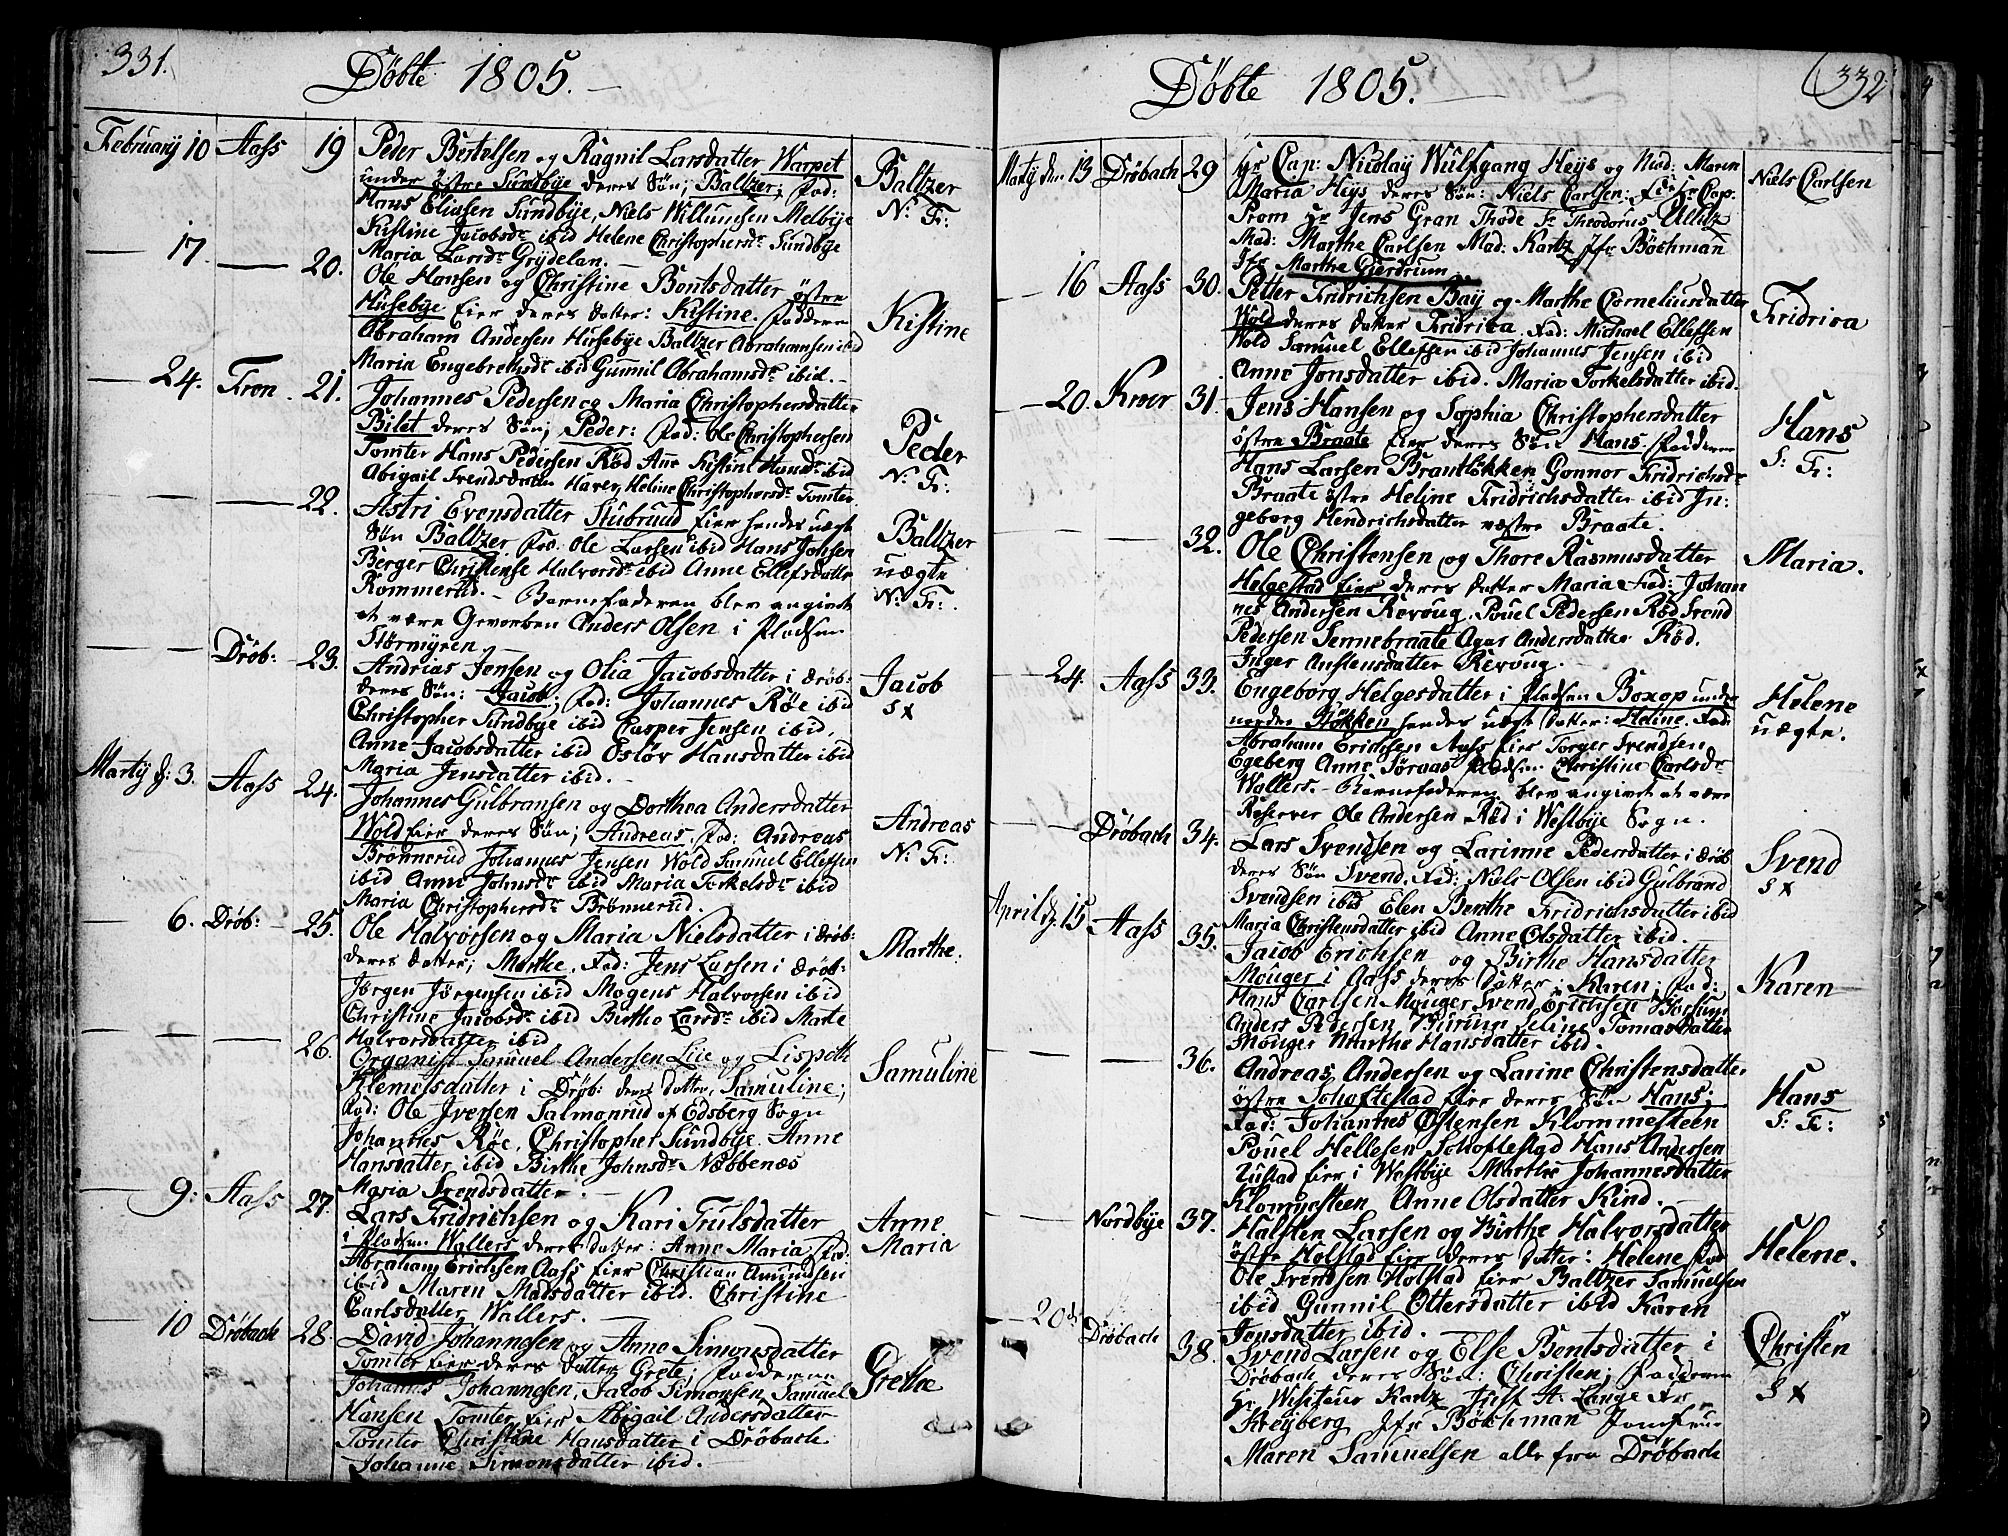 331.
Döbte 1805.
February 10 Aass 19 Peder Bertelsen og Ragnil Larsdatter Warpet
under östre Sundbye deres Sön; Baltzer; Fad:
Baltzer
N: F:
Hans Eliasen Sundbye, Niels Willumsen Melbye
Kistine Jacobsdr ibid Helene Christophersdr Sundbye
Maria Larsdr Grydelan.
17. 20. Ole Hansen og Christine Bontsdatter östre
Husebye Eier deres datter: Kistine. Faddere
Kistine
Abraham Andersen Husebye Baltzer Abrahamsen ibid
Maria Engebretsdr ibid Gunnil Abrahamsdr ibid.
24. Fron. 21. Johannes Pedersen og Maria Christophersdatter
Bilet deres Sön; Peder: Fad: Ole Christophersen
Peder
N: F:
Tomter Hans Pedersen Röd Anne Kistine Hansdr ibid
Abigail Svendsdatter Haver, Heline Christophersdr Tomter
22. Astri Evensdatter Stubrud Eier hendes uægte
Sön Baltzer Fad. Ole Larsen ibid Hans Johsen
Baltzer
uægte
N: F:
Berger Christense Halvorsdr ibid Anne Ellefsdatter
Rommerud. Barnefaderen blev angivet
at være Gevorben Anders Olsen i Pladsen
Störmyren.
Dröb: 23. Andreas Jensen og Olia Jacobsdatter i Dröb:
deres Sön: Jacob; Fad: Johannes Röe ibid
Jacob
S x
Christopher Sundbye ibid Casper Jensen ibid,
Anne Jacobsdatter ibid Oslöv Hansdatter ibid
Maria Jensdatter ibid.
Martij d: 3. Aass 24. Johannes Gulbransen og Dorthea Andersdatter
Wold Eier deres Sön; Andreas. Fad: Andreas
Andreas
N: F:
Brönnerud Johannes Jensen Wold Samuel Ellefsen
ibid Anne Johnsdr ibid Maria Torkelsdr ibid
Maria Christophersdr Brönnerud.
6. Dröb: 25. Ole Halvorsen og Maria Nielsdatter i Dröb:
deres datter; Marthe. Fad: Jens Larsen i Dröb:
Marthe.
Jörgen Jörgensen ibid Mogens Halvorsen ibid
Christine Jacobsdr ibid Birthe Larsdr ibid Marte
Halvorsdatter ibid
26. Organist Samuel Andersen Lüe og Lispeth
Klemetsdatter i Dröb: deres datter. Samuline;
Samuline
Fad: Ole Iversen Salmonrud af Edsberg Sogn
Johannes Röe, Christopher Sundbye. Anne
Hansdatter ibid Birthe Johnsdr Næbbenæs
Maria Svendsdatter.
9: Aass 27. Lars Fridrichsen og Kari Trulsdatter
i Pladsen Wallers deres datter: Anne Maria, Fad.
Anne
Maria
Abraham Erichsen Aass Eier Christian Amundsen
ibid Maren Madsdatter ibid. Christine
Carlsdatter Wallers.
10 Dröbach 28. David Johannesen og Anne Simonsdatter
Tomter Eier deres datter Grete; Faddere
Grethe
Johannes Johannesen, Jacob Simonsen, Samuel
Hansen Tomter Eier Abigail Andersdatter
Tomter Christine Hansdatter i Dröbach
Johanne Simonsdatter ibid.
332
Döbte 1805.
Martij den 13 Dröbach 29 Hr Cap: Nicolay Wulfgang Heys og Mad: Maren
Maria Heys deres Sön: Niels Carlsen: F: Hr Cap:
Niels Carlsen
Prom Hr Jens Gran Thode Hr Theodorus
Mad: Marthe Carlsen Mad: Kartz Jfr Böchman
Jfr Marthe Gierdrum
16 Aass 30. Petter Fridrichsen Bay og Marthe Corneliusdatter
Wold deres datter Fridrica. Fad: Michael Ellefsen
Fridrica
Wold Samuel Ellefsen ibid Johannes Jensen ibid
Anne Jonsdatter ibid. Maria Torkelsdatter ibid.
20. Kroer 31. Jens Hansen og Sophia Christophersdatter
östre Braate Eier deres Sön Hans. Faddere
Hans
S: F:
Hans Larsen Brantlökken Gonnor Fridrichsdr
Braate östre Heline Fridrichsdatter ibid In-
geborg Hendrichsdatter væstre Braate.
32. Ole Christensen og Thore Rasmusdatter
Helgestad Eier deres datter Maria Fad: Johan
Maria.
nes Andersen Revoug. Pouel Pedersen Röd Svend
Pedersen Sennebraate Agar Andersdatter Röd.
Inger Anstensdatter Revoug.
24. Aass 33. Engeborg Helgesdatter i Pladsen Boxop under
nordre Stökken hendes uægte datter: Heline. Fad:
Helene
uægte.
Abraham Erichsen Aass Eier Torger Svendsen
Egeberg Anne Söraas Pladsen Christine Carlsdr
Wallers. Barnefaderen blev angivet at være
Reserver Ole Andersen Röd i Westbye Sogn.
Dröbach 34. Lars Svendsen og Larinne Pedersdatter i Dröb
deres Sön Svend. Fad: Niels Olsen ibid Gulbrand
Svend
S x
Svendsen ibid Elen Berthe Fridrichsdatter ibid
Maria Christensdatter ibid Anne Olsdatter ibid.
April d. 15 Aass 35. Jacob Erichsen og Birthe Hansdatter
Mouger i Aass deres datter; Karen; Fad:
Karen
Hans Carlsen Mouger Svend Erichsen
Anders Pedersen Burum Seline Tomasdatter
Mouger Marthe Hansdatter ibid.
36. Andreas Andersen og Larine Christensdatter
östre Schoftestad Eier deres Sön Hans;
Hans
S: F:
Fad: Johannes Ostensen Klommesteen
Pouel Hellesen Schoftestad Hans Andersen
Rustad Eier i Westbye Marthe Johannesdatter
Klommesteen Anne Olsdatter Kind.
Nordbye 37. Halsten Larsen og Birthe Halvorsdatter
östre Holstad Eier deres datter: Helene Fad
Helene.
Ole Svendsen Holstad Eier Baltzer Samuelsen
ibid Gunnil Ottersdatter ibid Karen
Jensdatter ibid.
20de Dröbach 38. Svend Larsen og Else Bentsdatter i
Dröbach deres Sön: Christen; Faddere
Christen
S x
Hr Wisiteur Kartz Just St: Lange Fr
Kreyberg Jfr Böckman Jomfrue
Maren Samuelsen alle fra Dröbach